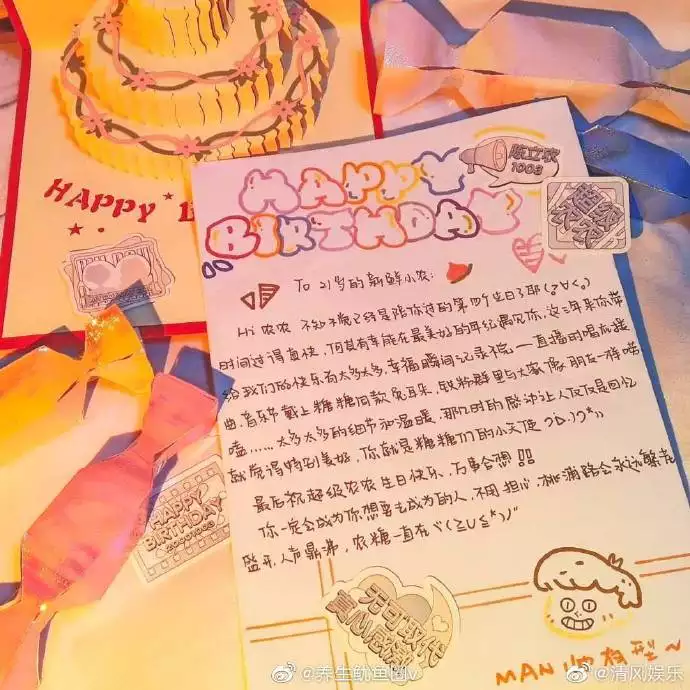 HAPPY
HAPPY
BIRTHDAY
陈立农
1003
超级
农农
To 21岁的新鲜小农:
Hi 农农 不知不觉已经是陪你过的第四个生日了耶
时间过得真快,何其有幸能在最美好的年纪遇见你,这三年来你带
给我们的快乐有太多太多,幸福瞬间记录不完——直播时唱你谱
曲,音乐节戴上糖糖同款兔耳朵,银粉群里与大家像朋友一样唠
嗑……太多太多的细节和温暖,那几时的感动让人仅仅是回忆
就觉得特别美好,你就是糖糖们的小天使
最后祝超级农农生日快乐,万事合想!!
你一定会成为你想要去成为的人,不用担心,桃浦路会永远繁花
盛开,人声鼎沸,农糖一直在
HAPPY
BIRTHDAY
20001003
无可取代
真心感谢
MAN 帅有型~
@养生鱿鱼圈v
@清风娱乐